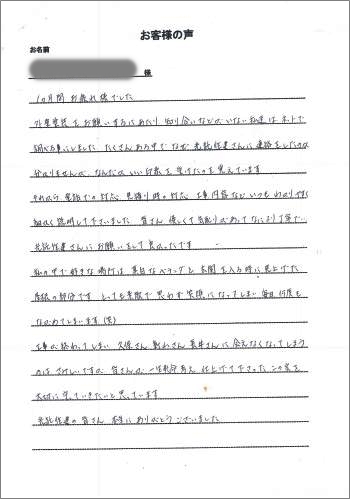 お客様の声
お名前
様
10月間 お疲れ様でした
外壁塗装をお願いするにあたり 知り合いなどのいない私達はネットで
調べる事にしました たくさんある中で なぜ 光託住建さんに連絡をしたのか
分かりませんが、なんだか いい印象を受けたのを覚えています
それから 電話での対応 見積り時の対応 工事内容など いつも わかり易く
細かく説明して下さいました 皆さん 優しくて 気配りがあって なにより丁寧で、
光託住建さんにお願いをして良かったです
私の中で好きな場所は 真白なベランダと 玄関を入る時に見上げた
屋根の部分です とっても素敵で 思わず笑顔になってしまい 毎日何度も
ながめてしまいます (笑)
工事が終わってしまい 久保さん 鄭わさん 長井さんに会えなくなってしまう
のは さみしいですが 皆さんが 一生懸命考え 仕上げて下さった この家を
大切に 守っていきたいと思っています
光託住建の皆さん 本当にありがとうございました